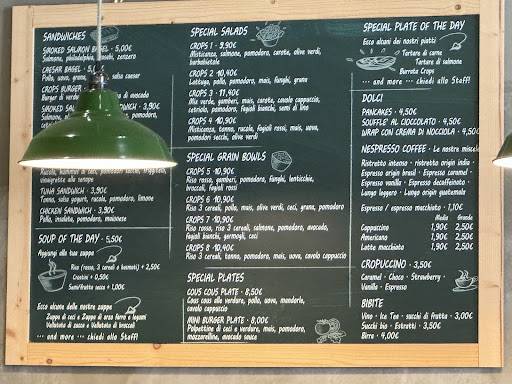 SANDWICHES
SMOKED SALMON BAGEL • 5,00€
Salmone, philadelphia, finocchi, zenzero
CAESAR BAGEL • 5,0
Pollo, uova, grana, salsa caesar
CROPS BURGER
Burger di verdure di avocado
SMOKED SALMON SANDWICH • 3,90€
Salmone, pomodoro
Rucola, hummus di ceci, pomodori secchi, friggitelli,
vinaigrette alla senape
TUNA SANDWICH • 3,90€
Tonno, salsa yogurt, rucola, pomodoro, limone
CHICKEN SANDWICH • 3,90€
Pollo, insalata, pomodoro, maionese
SOUP OF THE DAY • 5,50€
Aggiungi alla tua zuppa
Riso (rosso, 3 cereali o basmati) + 2,50€
Crostini + 0,50€
Semi/frutta secca + 1,00€
Ecco alcune delle nostre zuppe
Zuppa di ceci • Zuppa di orzo farro e legumi
Vellutata di zucca • Vellutata di broccoli
... and more ... chiedi allo Staff!
SPECIAL SALADS
CROPS 1 • 9,90€
Misticanza, salmone, pomodoro, carote, olive verdi,
barbabietole
CROPS 2 • 10,40€
Lattuga, pollo, pomodoro, mais, funghi, grana
CROPS 3 • 11,40€
Mix verde, gamberi, mais, carote, cavolo cappuccio,
cetriolo, pomodoro, fagioli bianchi, semi di lino
CROPS 4 • 10,90€
Misticanza, tonno, rucola, fagioli rossi, mais, uova,
pomodori secchi, olive verdi
SPECIAL GRAIN BOWLS
CROPS 5 • 10,90€
Riso rosso, gamberi, pomodoro, funghi, lenticchie,
broccoli, fagioli rossi
CROPS 6 • 10,90€
Riso 3 cereali, pollo, mais, olive verdi, ceci, grana, pomodoro
CROPS 7 • 10,90€
Riso rosso, riso 3 cereali, salmone, pomodoro, avocado,
fagioli bianchi, germogli, ceci
CROPS 8 • 10,40€
Riso 3 cereali, tonno, pomodoro, mais, uova, cavolo cappuccio
SPECIAL PLATES
COUS COUS PLATE • 8,50€
Cous cous alle verdure, pollo, uova, mandorle,
cavolo cappuccio
MINI BURGER PLATE • 8,00€
Polpettine di ceci e verdure, mais, pomodoro,
mozzarelline, avocado sauce
SPECIAL PLATE OF THE DAY
Ecco alcuni dei nostri piatti
Tartare di carne
Tartare di salmone
Burrata Crops
... and more ... chiedi allo Staff!
DOLCI
PANCAKES • 4,50€
SOUFFLE' AL CIOCCOLATO • 4,50€
WRAP CON CREMA DI NOCCIOLA • 4,50€
NESPRESSO COFFEE • Le nostre miscele
Ristretto intenso • ristretto origin india
Espresso origin brasil • Espresso caramel
Espresso vanilla • Espresso decaffeinato
Lungo leggero • Lungo origin guatemala
Espresso / espresso macchiato • 1,10€
Medio Grande
Cappuccino 1,90€ 2,50€
Americano 1,90€ 2,50€
Latte macchiato 1,90€ 2,50€
CROPUCCINO • 3,50€
Caramel • Choco • Strawberry •
Vanilla • Espresso
BIBITE
Vino • Ice Tea • succhi di frutta • 3,00€
Succhi bio • Estratti • 3,50€
Birre • 4,00€